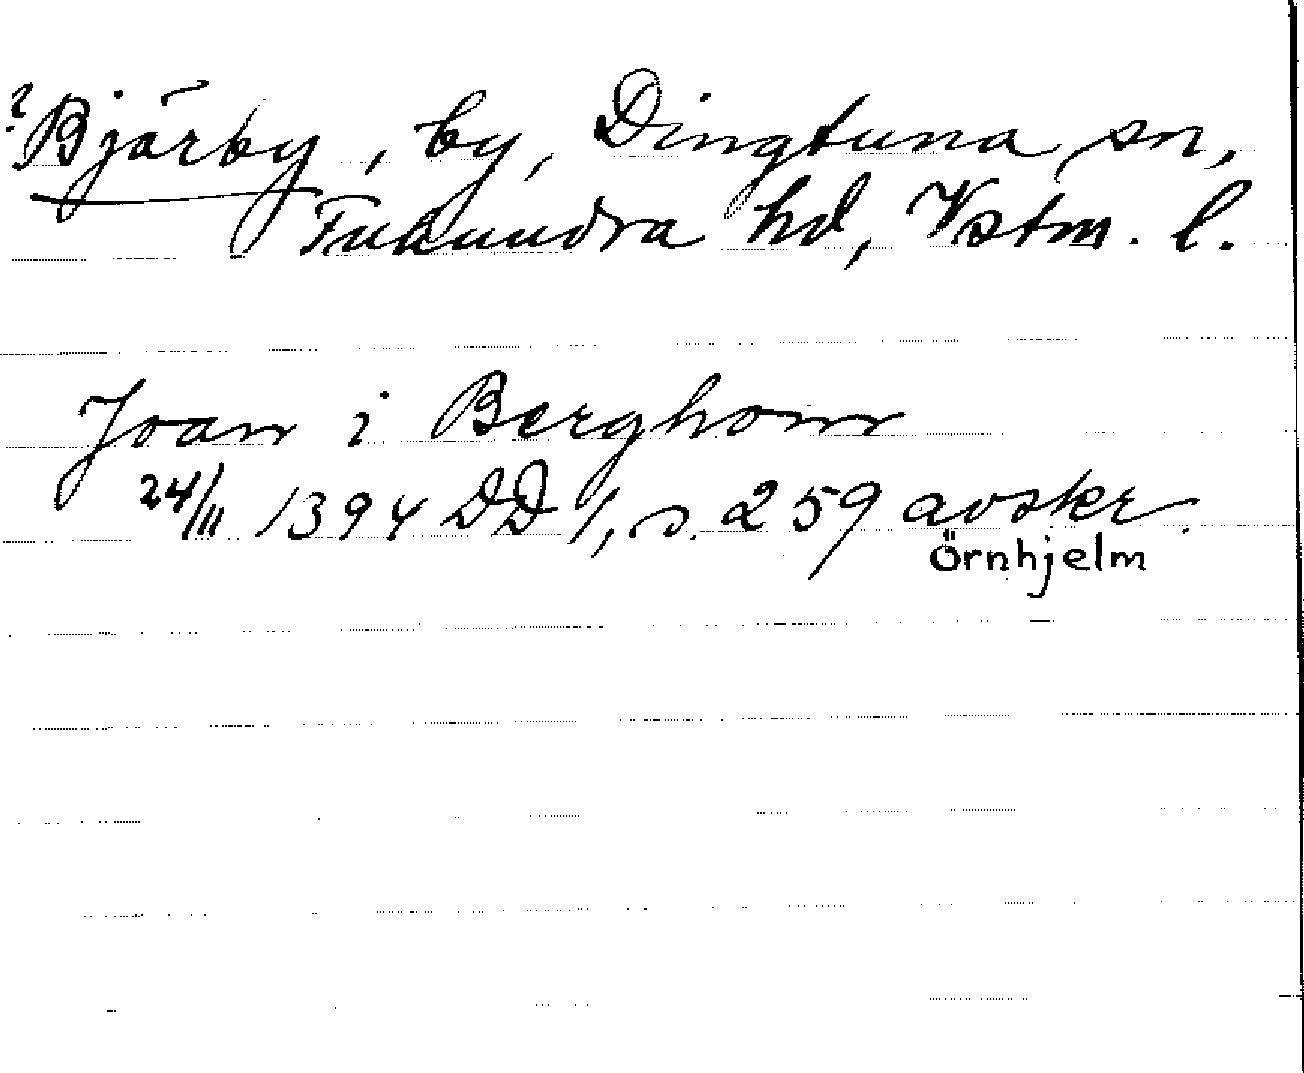 ? Bjärby, by, Dingtuna sn,
Tuhundra hd, Vstm. l.
Joan i Berghom
24/II 1394 DD 1, s. 259 avskr.
Örnhjelm